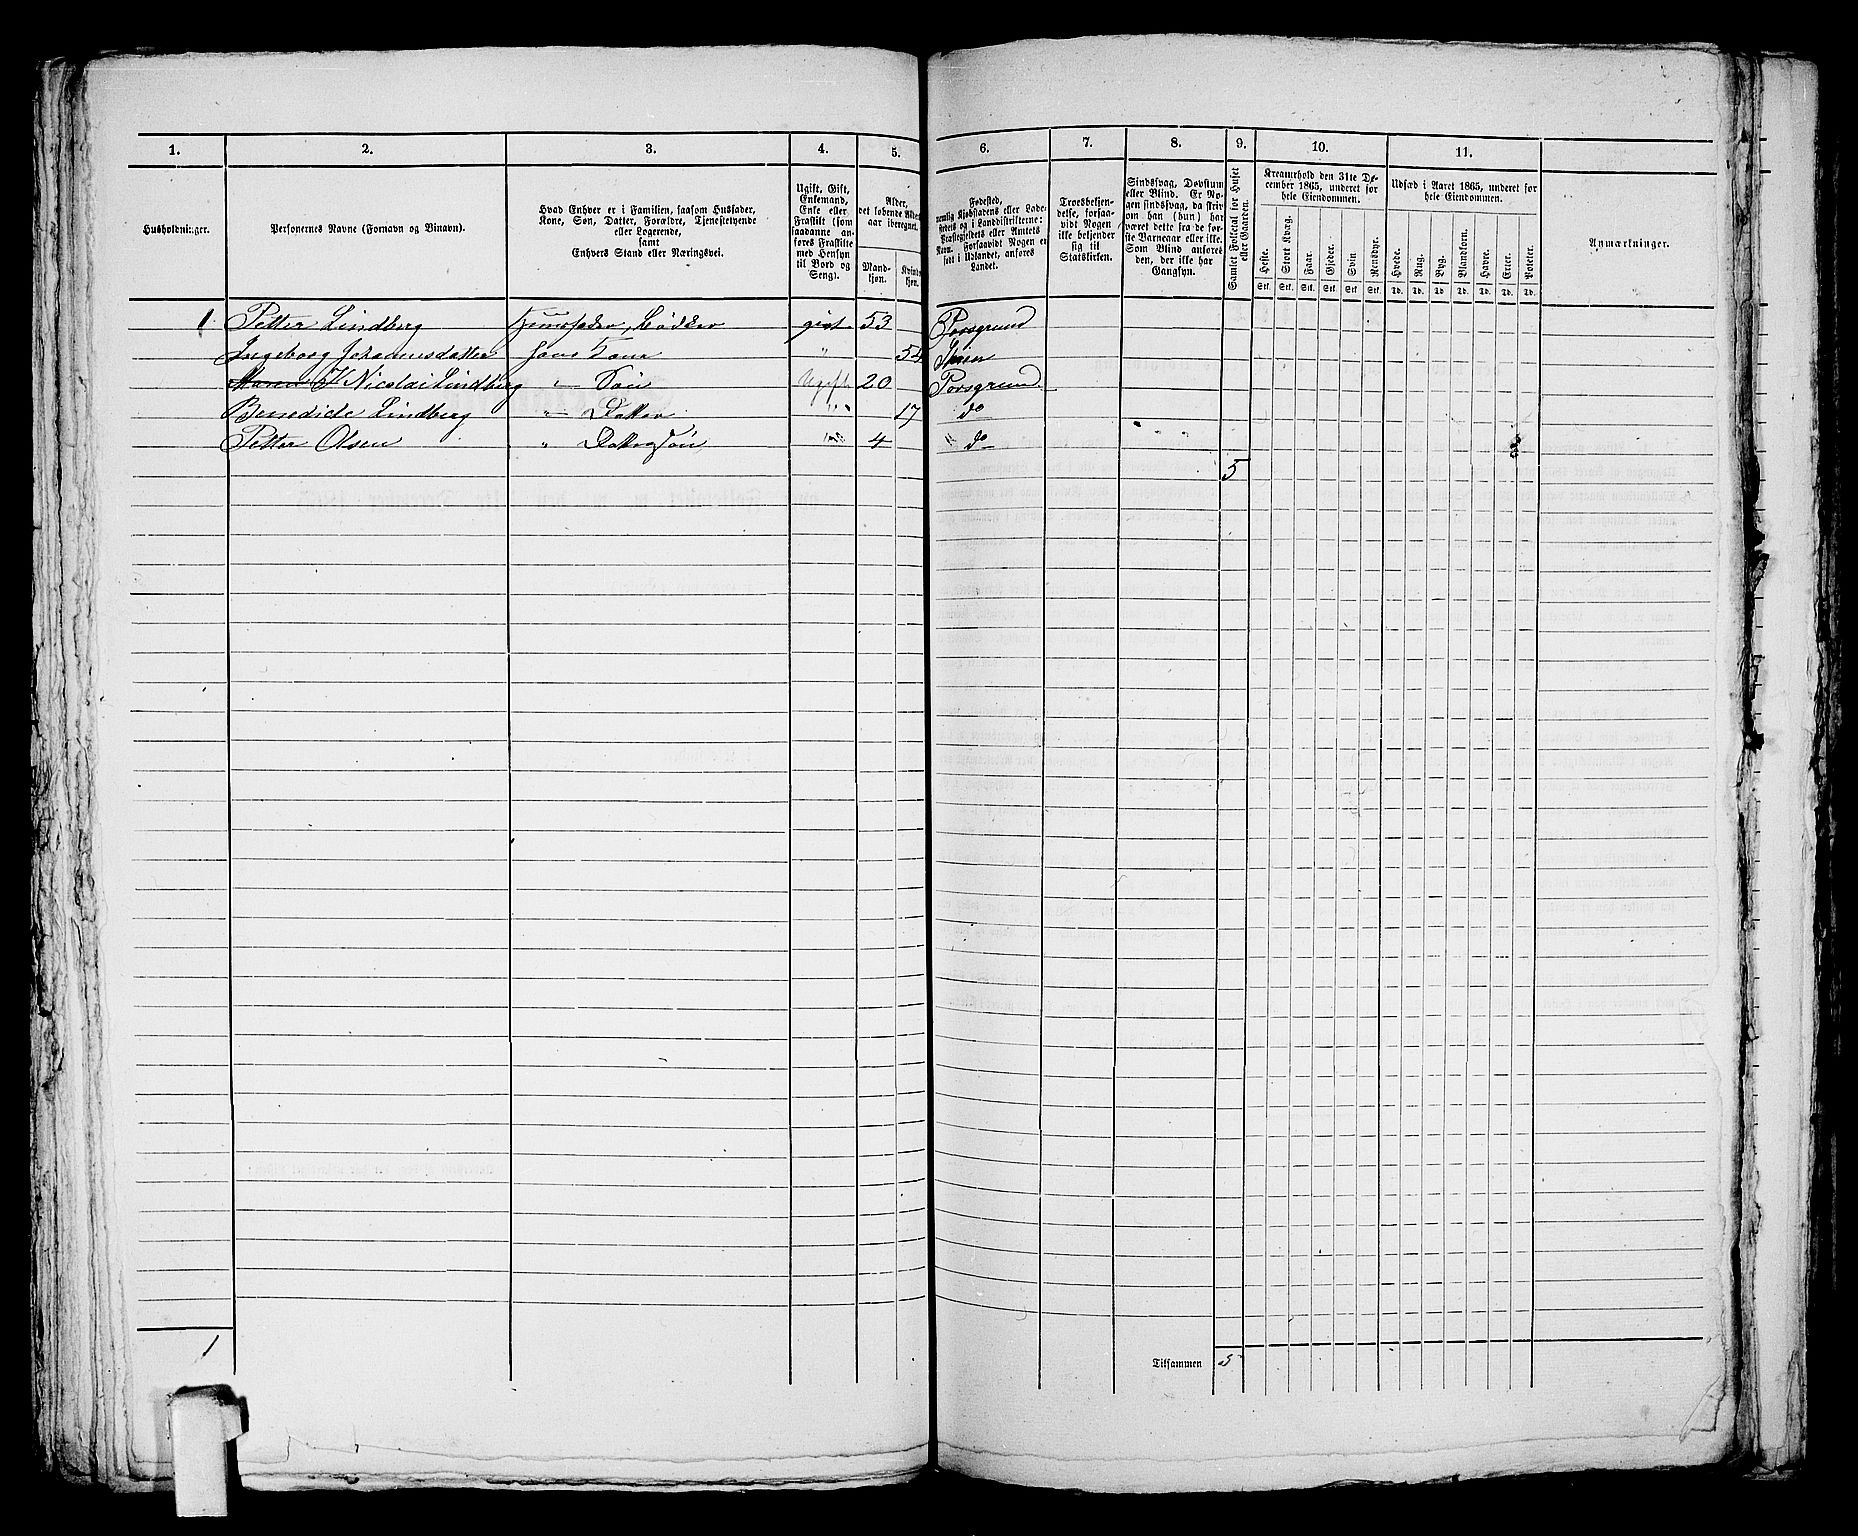 1. 2. 3. 4. 5. 6. 7. 8. 9. 10. 11.
Husholdninger.
Personernes Navne (Fornavn og Binavn).
Hvad Enhver er i Familien, saasom Husfader,
Kone, Søn, Datter, Forældre, Tjenestetyende
eller Logerende,
samt
Enhvers Stand eller Næringsvei.
Ugift, Gift,
Enkemand,
Enke eller
Fraskilt (som
saadanne an-
føres Fraskilte
med Hensyn
til Bord og
Seng).
Alder,
det løbende Alders-
aar iberegnet.
Mand-
kjøn.
Kvinde-
kjøn.
Fødested,
nemlig Kjøbstadens eller Lade-
stedets og i Landdistrikterne:
Præstegjeldets eller Amtets
Navn. Forsaavidt Nogen er
født i Udlandet, anføres
Landet.
Troesbekjen-
delse, forsaa-
vidt Nogen
ikke bekjender
sig til
Statskirken.
Sindssvag, Døvstum
eller Blind. Er No-
gen sindssvag, da skriv
om han (hun) har
været dette fra de før-
ste Barneaar eller ikke.
Som Blind anføres
den, der ikke har
Gangsyn.
Samlet Folketal for Huset
eller Gaarden.
Kreaturhold den 31te De-
cember 1865, underet for
hele Eiendommen.
Heste. Stort Kvæg. Faar. Gjeder. Svin Rensdyr.
Stk. Stk. Stk. Stk. Stk. Stk.
Udsæd i Aaret 1865, underet for
hele Eiendommen.
Hvede. Rug. Byg. Blandkorn. Havre. Erter. Poteter.
Td. Td. Td. Td. Td. Td. Td.
Anmærkninger.
1 Petter Lindberg Huusfader, Bödker givt 53 Porsgrund
Ingeborg Johannesdatter hans Kone " 54 Skien
Nicolai Lindberg " Sön Ugift 20 Porsgrund
Benedicte Lindberg " Datter " 17 do
Petter Olsen " Dattersön " 4 " do
5
1
Tilsammen 5